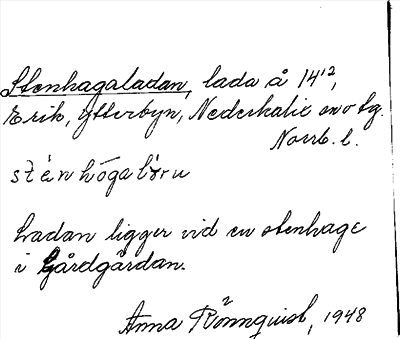 Stenhagaladan, lada å 14¹²,
Erik, Ytterbyn, Nederkalix sn o tg.
Norrb. l.
sténhōgalòru
Ladan ligger vid en stenhage
i Gårdgårdan.
Anna Rönnquist, 1948